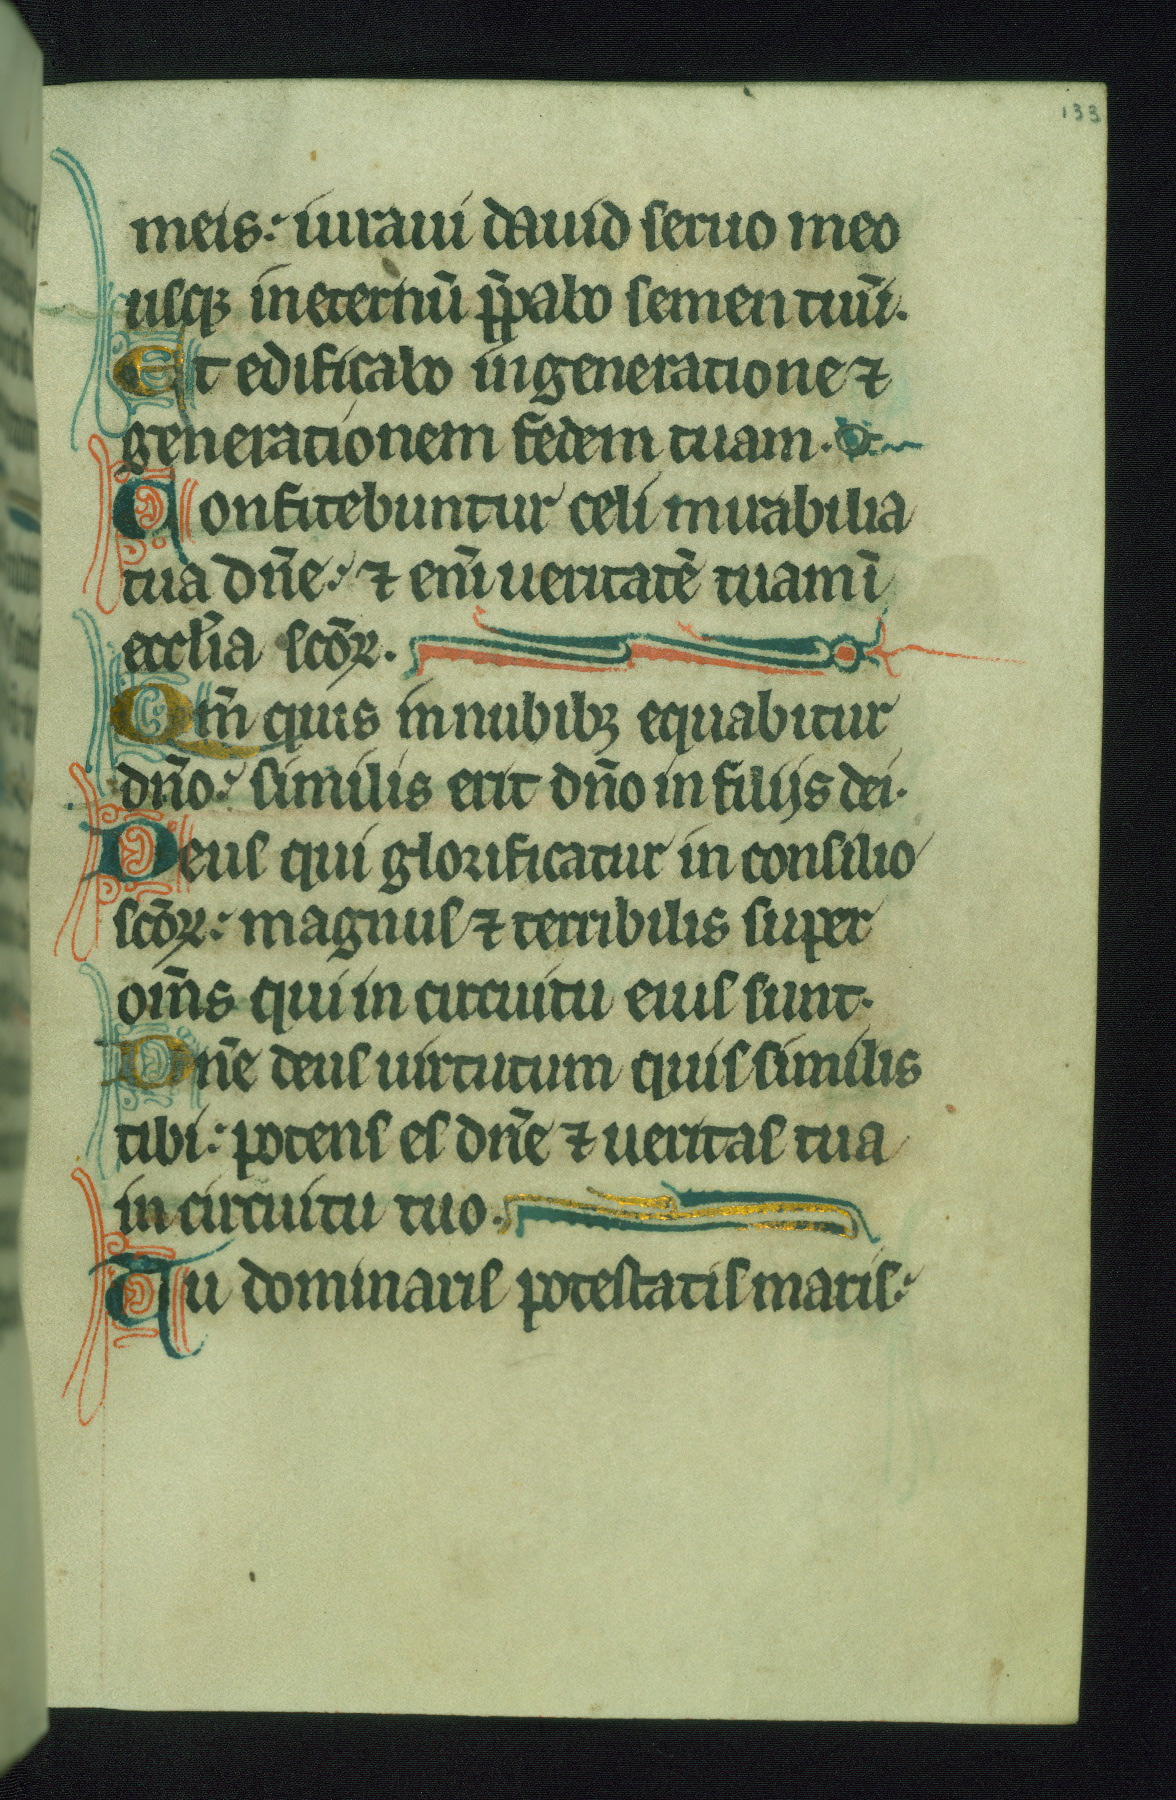 133
meis: iuraui dauid seruo meo
usq; in eternū p̄pabo semen tuū.
Et edificabo in generatione ⁊
generationem sedem tuam.
Confitebuntur celi mirabilia
tua dn̄e: ⁊ eni̅ ueritatē tuam ī
eccl̄ia scōꝝ.
Qm̄ quis in nubibꝫ equabitur
dn̄o: similis erit dn̄o in filijs dei.
Deus qui glorificatur in consilio
scōꝝ: magnus ⁊ terribilis super
om̄s qui in circuitu eius sunt.
Dn̄e deus uirtutum quis similis
tibi: potens es dn̄e ⁊ ueritas tua
in circuitu tuo.
Tu dominaris potestatis maris: